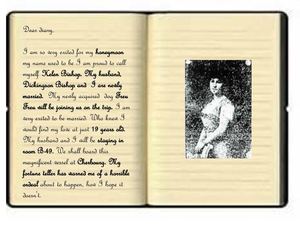 Dear diary,
I am so very exited for my honeymoon
my name used to be I am proud to call
myself Helen Bishop. My husband,
Dickingson Bishop and I are newly
married. My newly acquired dog Frou
Frou will be joining us on the trip. I am
very exited to be married. Who knew I
would find my love at just 19 years old.
My husband and I will be staying in
room B-49. We shall board this
magnificent vessel at Cherboung. My
fortune teller has warned me of a horrible
ordeal about to happen, how I hope it
doesn't.